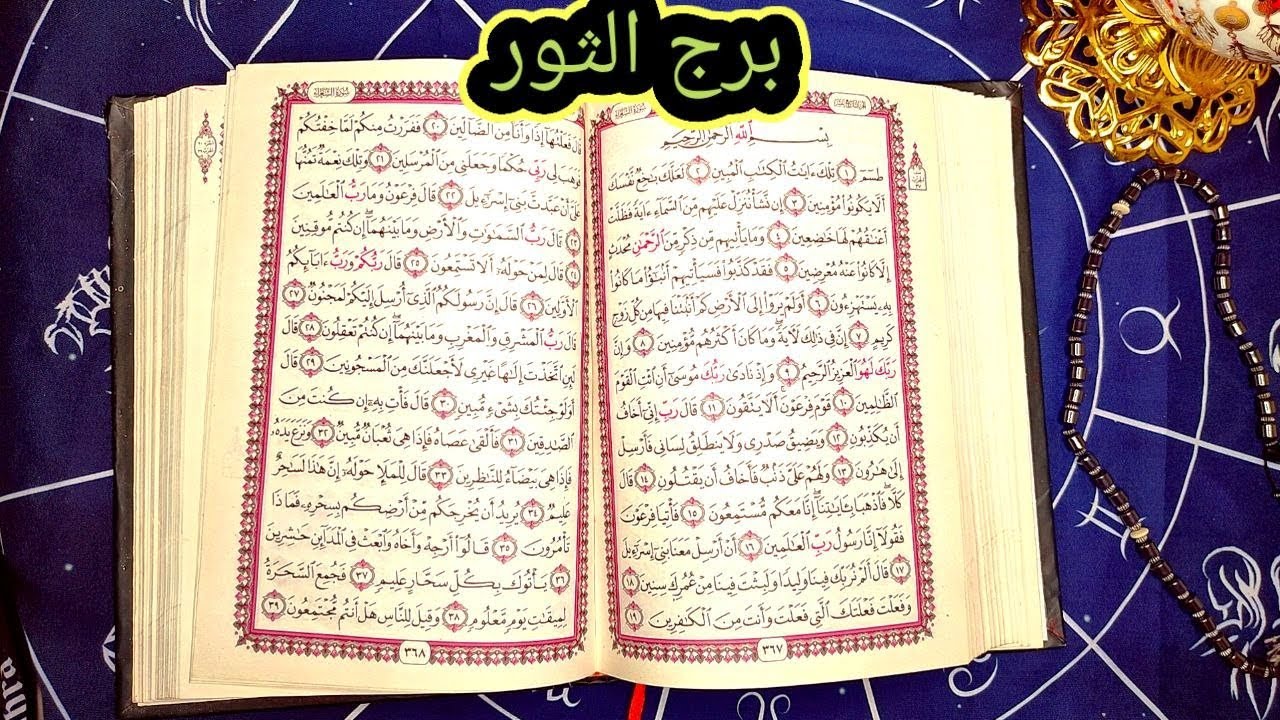 برج الثور
سُورَةُ الشُّعَرَاءِ
بِسْمِ اللَّهِ الرَّحْمَٰنِ الرَّحِيمِ
طسٓمٓ ١ تِلْكَ ءَايَٰتُ الْكِتَٰبِ الْمُبِينِ ٢ لَعَلَّكَ بَٰخِعٌ نَّفْسَكَ
أَلَّا يَكُونُوا مُؤْمِنِينَ ٣ إِن نَّشَأْ نُنَزِّلْ عَلَيْهِم مِّنَ السَّمَآءِ ءَايَةً فَظَلَّتْ
أَعْنَٰقُهُمْ لَهَا خَٰضِعِينَ ٤ وَمَا يَأْتِيهِم مِّن ذِكْرٍ مِّنَ الرَّحْمَٰنِ مُحْدَثٍ
إِلَّا كَانُوا عَنْهُ مُعْرِضِينَ ٥ فَقَدْ كَذَّبُوا فَسَيَأْتِيهِمْ أَنۢبَٰٓؤُا مَا كَانُوا
بِهِۦ يَسْتَهْزِءُونَ ٦ أَوَلَمْ يَرَوْا إِلَى الْأَرْضِ كَمْ أَنۢبَتْنَا فِيهَا مِن كُلِّ زَوْجٍ
كَرِيمٍ ٧ إِنَّ فِي ذَٰلِكَ لَءَايَةً وَمَا كَانَ أَكْثَرُهُم مُّؤْمِنِينَ ٨ وَإِنَّ
رَبَّكَ لَهُوَ الْعَزِيزُ الرَّحِيمُ ٩ وَإِذْ نَادَىٰ رَبُّكَ مُوسَىٰٓ أَنِ ائْتِ الْقَوْمَ
الظَّٰلِمِينَ ١٠ قَوْمَ فِرْعَوْنَ أَلَا يَتَّقُونَ ١١ قَالَ رَبِّ إِنِّيٓ أَخَافُ
أَن يُكَذِّبُونِ ١٢ وَيَضِيقُ صَدْرِي وَلَا يَنطَلِقُ لِسَانِي فَأَرْسِلْ
إِلَىٰ هَٰرُونَ ١٣ وَلَهُمْ عَلَيَّ ذَنۢبٌ فَأَخَافُ أَن يَقْتُلُونِ ١٤ قَالَ
كَلَّا فَاذْهَبَا بِـَٔايَٰتِنَآ إِنَّا مَعَكُم مُّسْتَمِعُونَ ١٥ فَأْتِيَا فِرْعَوْنَ
فَقُولَآ إِنَّا رَسُولُ رَبِّ الْعَٰلَمِينَ ١٦ أَنْ أَرْسِلْ مَعَنَا بَنِيٓ إِسْرَٰٓءِيلَ
١٧ قَالَ أَلَمْ نُرَبِّكَ فِينَا وَلِيدًا وَلَبِثْتَ فِينَا مِنْ عُمُرِكَ سِنِينَ ١٨
وَفَعَلْتَ فَعْلَتَكَ الَّتِي فَعَلْتَ وَأَنتَ مِنَ الْكَٰفِرِينَ ١٩
٣٦٧
سُورَةُ الشُّعَرَاءِ
قَالَ فَعَلْتُهَآ إِذًا وَأَنَا۠ مِنَ الضَّآلِّينَ ٢٠ فَفَرَرْتُ مِنكُمْ لَمَّا خِفْتُكُمْ
فَوَهَبَ لِي رَبِّي حُكْمًا وَجَعَلَنِي مِنَ الْمُرْسَلِينَ ٢١ وَتِلْكَ نِعْمَةٌ تَمُنُّهَا
عَلَيَّ أَنْ عَبَّدتَّ بَنِيٓ إِسْرَٰٓءِيلَ ٢٢ قَالَ فِرْعَوْنُ وَمَا رَبُّ الْعَٰلَمِينَ
٢٣ قَالَ رَبُّ السَّمَٰوَٰتِ وَالْأَرْضِ وَمَا بَيْنَهُمَآ إِن كُنتُم مُّوقِنِينَ
٢٤ قَالَ لِمَنْ حَوْلَهُۥٓ أَلَا تَسْتَمِعُونَ ٢٥ قَالَ رَبُّكُمْ وَرَبُّ ءَابَآئِكُمُ
الْأَوَّلِينَ ٢٦ قَالَ إِنَّ رَسُولَكُمُ الَّذِيٓ أُرْسِلَ إِلَيْكُمْ لَمَجْنُونٌ ٢٧
قَالَ رَبُّ الْمَشْرِقِ وَالْمَغْرِبِ وَمَا بَيْنَهُمَآ إِن كُنتُمْ تَعْقِلُونَ ٢٨ قَالَ
لَئِنِ اتَّخَذْتَ إِلَٰهًا غَيْرِي لَأَجْعَلَنَّكَ مِنَ الْمَسْجُونِينَ ٢٩ قَالَ
أَوَلَوْ جِئْتُكَ بِشَيْءٍ مُّبِينٍ ٣٠ قَالَ فَأْتِ بِهِۦٓ إِن كُنتَ مِنَ
الصَّٰدِقِينَ ٣١ فَأَلْقَىٰ عَصَاهُ فَإِذَا هِيَ ثُعْبَانٌ مُّبِينٌ ٣٢ وَنَزَعَ يَدَهُۥ
فَإِذَا هِيَ بَيْضَآءُ لِلنَّٰظِرِينَ ٣٣ قَالَ لِلْمَلَإِ حَوْلَهُۥٓ إِنَّ هَٰذَا لَسَٰحِرٌ
عَلِيمٌ ٣٤ يُرِيدُ أَن يُخْرِجَكُم مِّنْ أَرْضِكُم بِسِحْرِهِۦ فَمَاذَا
تَأْمُرُونَ ٣٥ قَالُوٓا أَرْجِهْ وَأَخَاهُ وَابْعَثْ فِي الْمَدَآئِنِ حَٰشِرِينَ
٣٦ يَأْتُوكَ بِكُلِّ سَحَّارٍ عَلِيمٍ ٣٧ فَجُمِعَ السَّحَرَةُ
لِمِيقَٰتِ يَوْمٍ مَّعْلُومٍ ٣٨ وَقِيلَ لِلنَّاسِ هَلْ أَنتُم مُّجْتَمِعُونَ ٣٩
٣٦٨